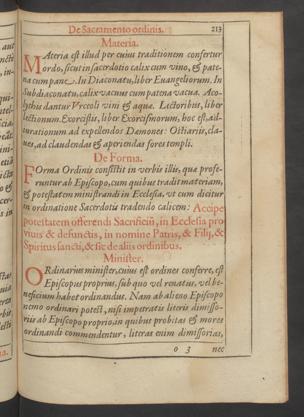 De Sacramento ordinis. 213
Materia.
MAteria est illud per cuius traditionem confertur
ordo, sicut in sacerdotio calix cum vino, & pate-
na cum pane. In Diaconatu, liber Euangeliorum. In
Subdiaconatu, calix vacuus cum patena vacua. Aco-
lythis dantur Vrceoli vini & aquæ. Lectoribus, liber
lectionum. Exorcistis, liber Exorcismorum, hoc est, ad-
iurationum ad expellendos Dæmones: Ostiariis, cla-
ues, ad claudendas & aperiendas fores templi.
De Forma.
FOrma Ordinis consistit in verbis illis, quæ profe-
runtur ab Episcopo, cum quibus tradit materiam,
& potestatem ministrandi in Ecclesia, vt cum dicitur
in ordinatione Sacerdotis tradendo calicem: Accipe
potestatem offerendi Sacrificiũ, in Ecclesia pro
viuis & defunctis, in nomine Patris, & Filij, &
Spiritus sancti, & sic de aliis ordinibus.
Minister.
ORdinarius minister, cuius est ordines conferre, est
Episcopus proprius, sub quo vel renatus, vel be-
neficium habet ordinandus. Nam ab alieno Episcopo
nemo ordinari potest, nisi impetratis literis dimisso-
riis ab Episcopo proprio, in quibus probitas & mores
ordinandi commendentur, literas enim dimissorias,
o 3 nec